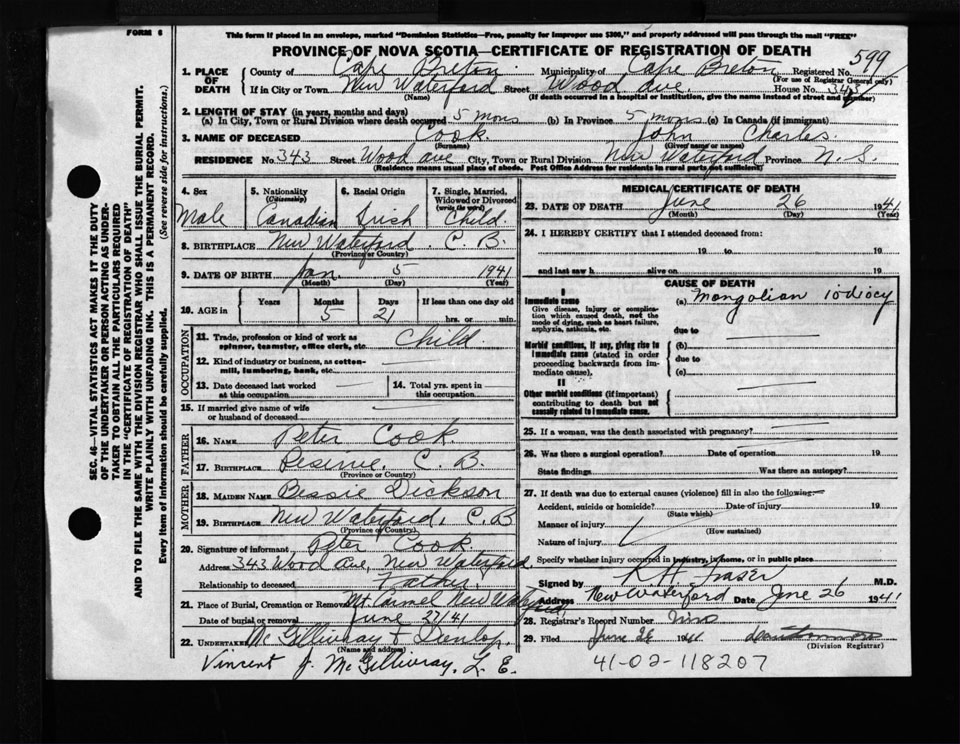 FORM 6
This form if placed in an envelope, marked "Dominion Statistics—Free, penalty for improper use $300," and properly addressed will pass through the mail "FREE"
PROVINCE OF NOVA SCOTIA—CERTIFICATE OF REGISTRATION OF DEATH
1. PLACE OF DEATH
County of Cape Breton Municipality of Cape Breton Registered No. 599
(For use of Registrar General only)
If in City or Town New Waterford Street Wood Ave. House No. 343
(Name) (If death occurred in a hospital or institution, give the name instead of street and number)
2. LENGTH OF STAY (in years, months and days)
(a) In City, Town or Rural Division where death occurred 5 mons (b) In Province 5 mons (c) In Canada (if immigrant)
3. NAME OF DECEASED Cook John Charles.
(Surname) (Given name or names)
RESIDENCE No. 343 Street Wood ave City, Town or Rural Division New Waterford Province N. S.
(Residence means usual place of abode. Post Office Address for residents in rural parts not sufficient)
4. Sex Male
5. Nationality (Citizenship) Canadian
6. Racial Origin Irish
7. Single, Married, Widowed or Divorced (write the word) Child.
8. BIRTHPLACE New Waterford. C. B.
(Province or Country)
9. DATE OF BIRTH Jan. 5 1941
(Month) (Day) (Year)
10. AGE
Years Months Days If less than one day old
5 21 hrs. or min.
OCCUPATION
11. Trade, profession or kind of work as spinner, teamster, office clerk, etc. Child.
12. Kind of industry or business, as cotton-mill, lumbering, bank, etc.
13. Date deceased last worked at this occupation
14. Total yrs. spent in this occupation
15. If married give name of wife or husband of deceased
FATHER
16. NAME Peter Cook.
17. BIRTHPLACE C. B.
(Province or Country)
MOTHER
18. MAIDEN NAME Bessie Dickson
19. BIRTHPLACE New Waterford, C. B
(Province or Country)
20. Signature of informant Peter Cook
Address 343 Wood Ave, New Waterford
Relationship to deceased Father.
21. Place of Burial, Cremation or Removal Mt Carmel New Waterford
Date of burial or removal June 27/41
22. UNDERTAKER McGillivray & Dunlop.
(Name and address)
Vincent J. McGillivray, L. E.
MEDICAL CERTIFICATE OF DEATH
23. DATE OF DEATH June 26 1941
(Month) (Day) (Year)
24. I HEREBY CERTIFY that I attended deceased from:
19 to 19
and last saw h alive on 19
CAUSE OF DEATH
I
Immediate cause (a) Mongolian iodiocy
Give disease, injury or complication which caused death, not the mode of dying, such as heart failure, asphyxia, asthenia, etc.
due to
Morbid conditions, if any, giving rise to immediate cause (stated in order proceeding backwards from immediate cause).
(b)
due to
(c)
II
Other morbid conditions (if important) contributing to death but not causally related to immediate cause.
25. If a woman, was the death associated with pregnancy?
26. Was there a surgical operation? Date of operation 19
State findings Was there an autopsy?
27. If death was due to external causes (violence) fill in also the following:—
Accident, suicide or homicide? Date of injury 19
(State which)
Manner of injury
(How sustained)
Nature of injury
Specify whether injury occurred in industry, in home, or in public place
Signed by Fraser M.D.
Address New Waterford Date June 26 1941
28. Registrar's Record Number
29. Filed June 1941
(Division Registrar)
41-02-118207
SEC. 46—VITAL STATISTICS ACT MAKES IT THE DUTY
OF THE UNDERTAKER OR PERSON ACTING AS UNDER-
TAKER TO OBTAIN ALL THE PARTICULARS REQUIRED
IN THE "CERTIFICATE OF REGISTRATION OF DEATH"
AND TO FILE THE SAME WITH THE DIVISION REGISTRAR WHO SHALL ISSUE THE BURIAL PERMIT.
WRITE PLAINLY WITH UNFADING INK. THIS IS A PERMANENT RECORD.
Every item of information should be carefully supplied. (See reverse side for instructions.)